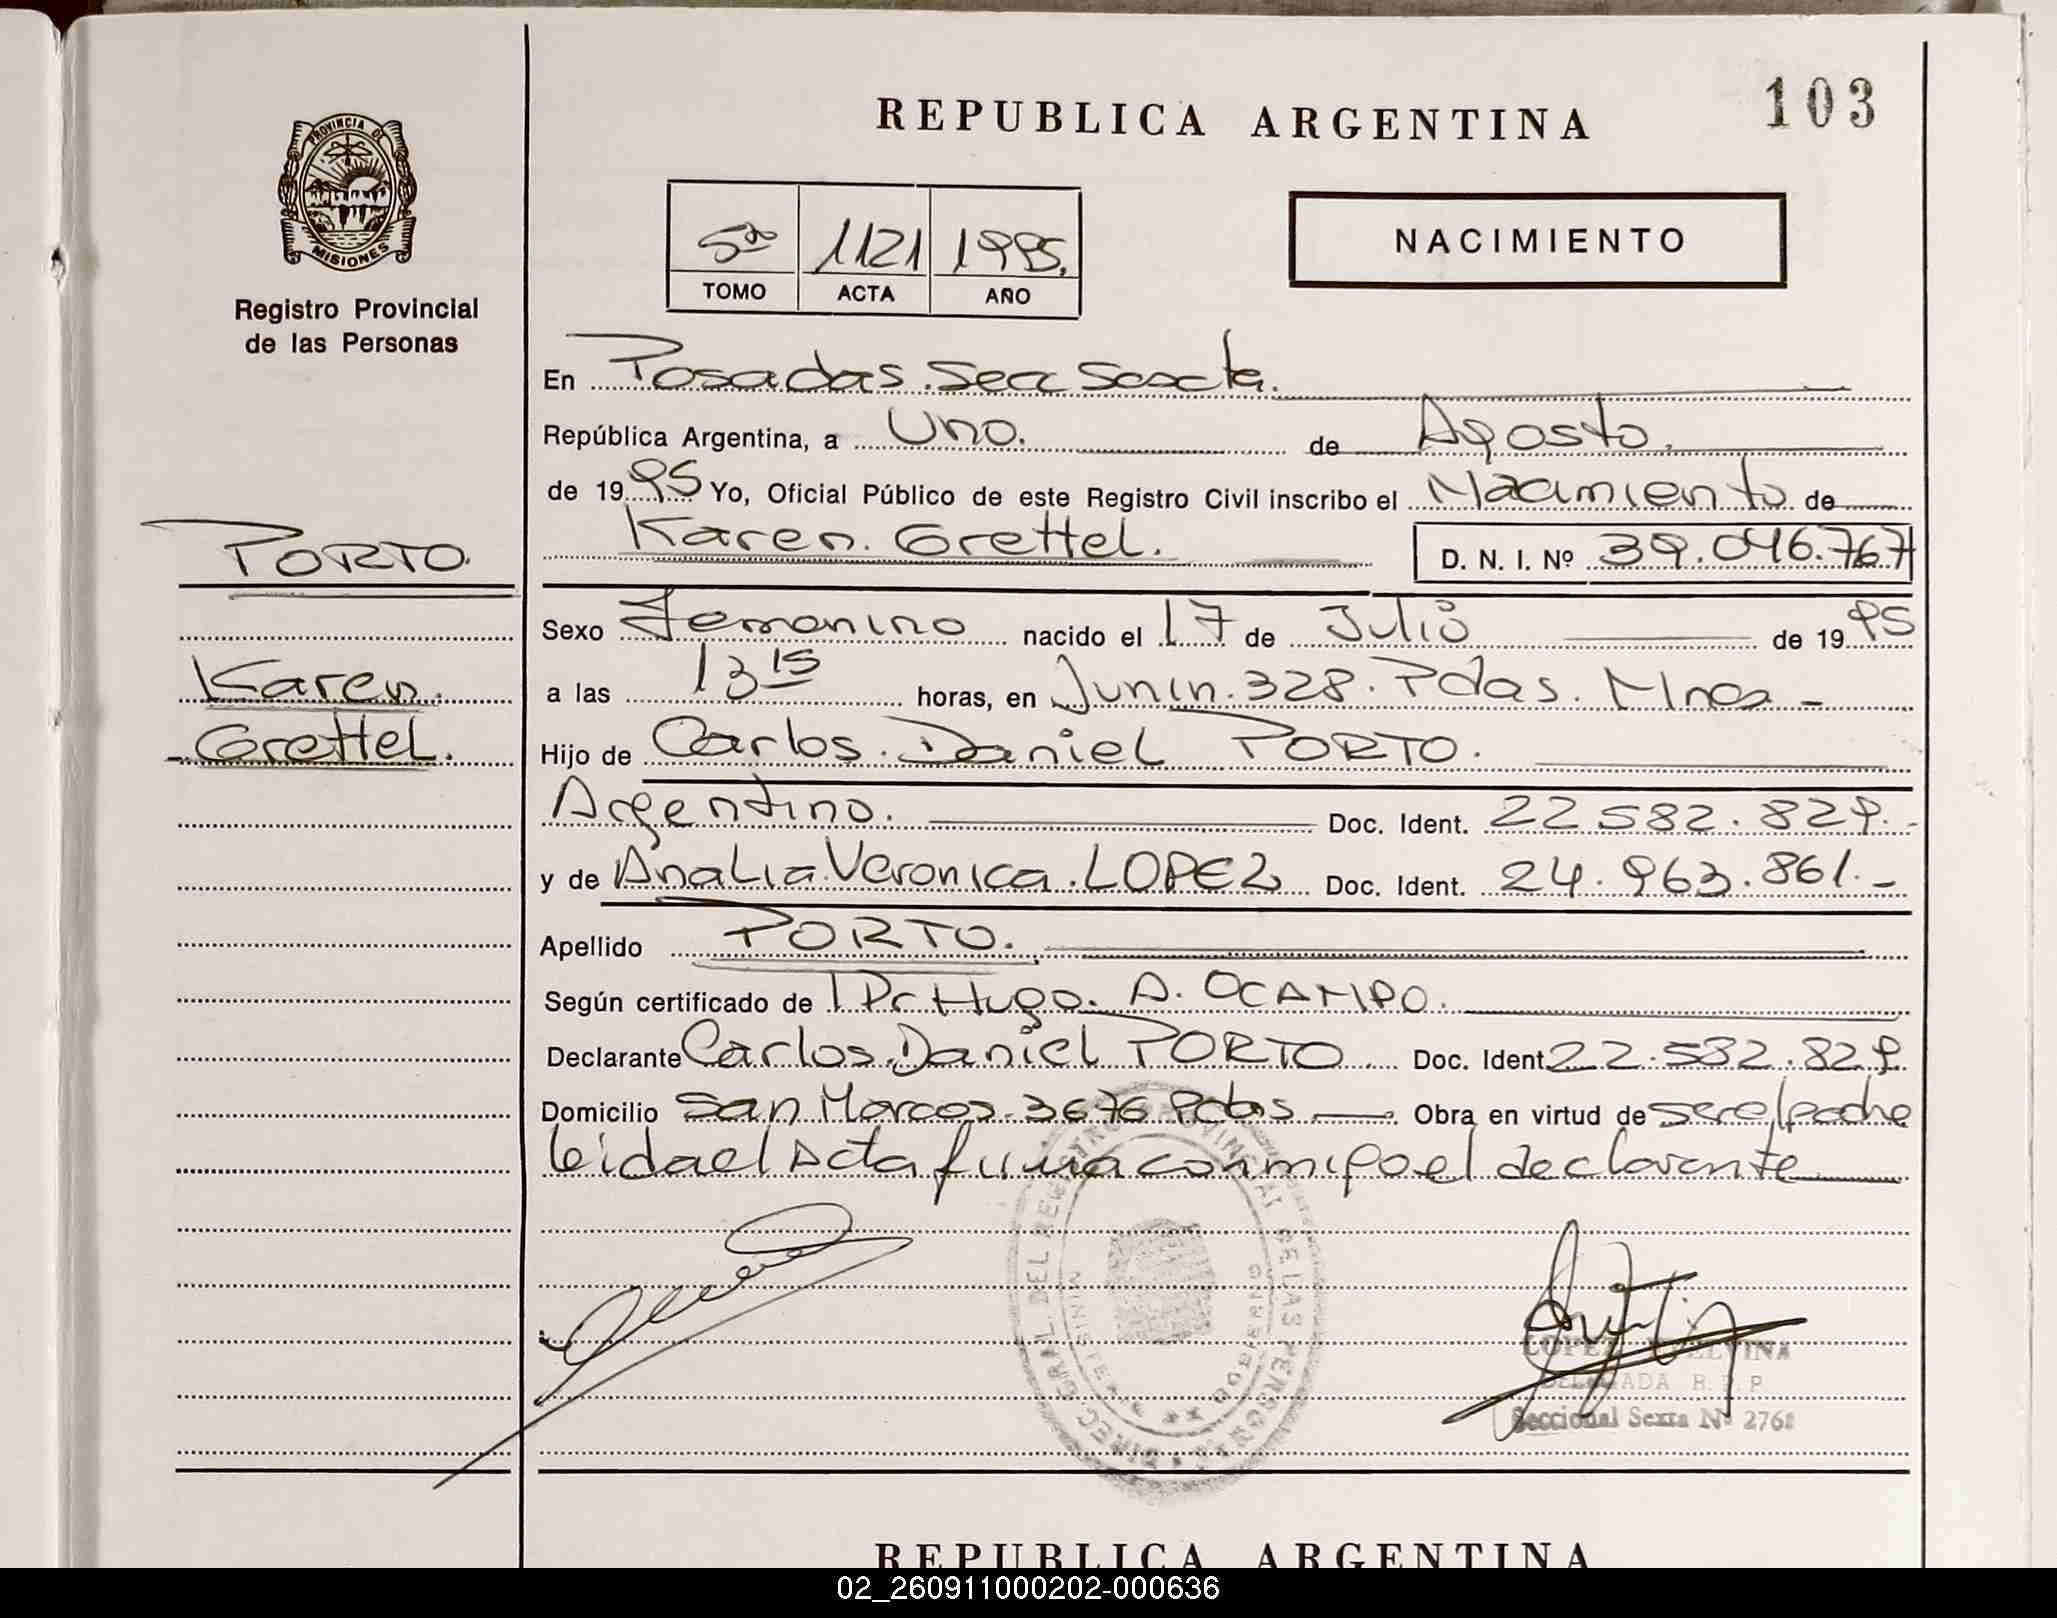 REPUBLICA ARGENTINA
103
PROVINCIA DE
MISIONES
Registro Provincial
de las Personas
5to 1121 1995.
TOMO ACTA AÑO
NACIMIENTO
En Posadas. Secc Sexta.
República Argentina, a Uno. de Agosto.
de 1995 Yo, Oficial Público de este Registro Civil inscribo el Nacimiento de
Karen. Grettel. D. N. I. Nº 39.046.767
PORTO.
Karen.
Grettel.
Sexo Femenino nacido el 17 de Julio de 1995
a las 13 15 horas, en Junin. 328. Pdas. Mnes -
Hijo de Carlos. Daniel PORTO.
Argentino. Doc. Ident. 22.582.829.-
y de Analia Veronica. LOPEZ Doc. Ident. 24.963.861.-
Apellido PORTO.
Según certificado de Dr. Hugo. A. OCAMPO.
Declarante Carlos. Daniel PORTO Doc. Ident 22.582.829.
Domicilio San Marcos. 3676 Pdas Obra en virtud de ser el padre
leida el Acta firma conmigo el declarante
DIREC. GRAL. DEL REGISTRO PROVINCIAL DE LAS PERSONAS
LOPEZ
DELEGADA R. P. P.
Seccional Sexta Nº 2768
REPUBLICA ARGENTINA
02_260911000202-000636